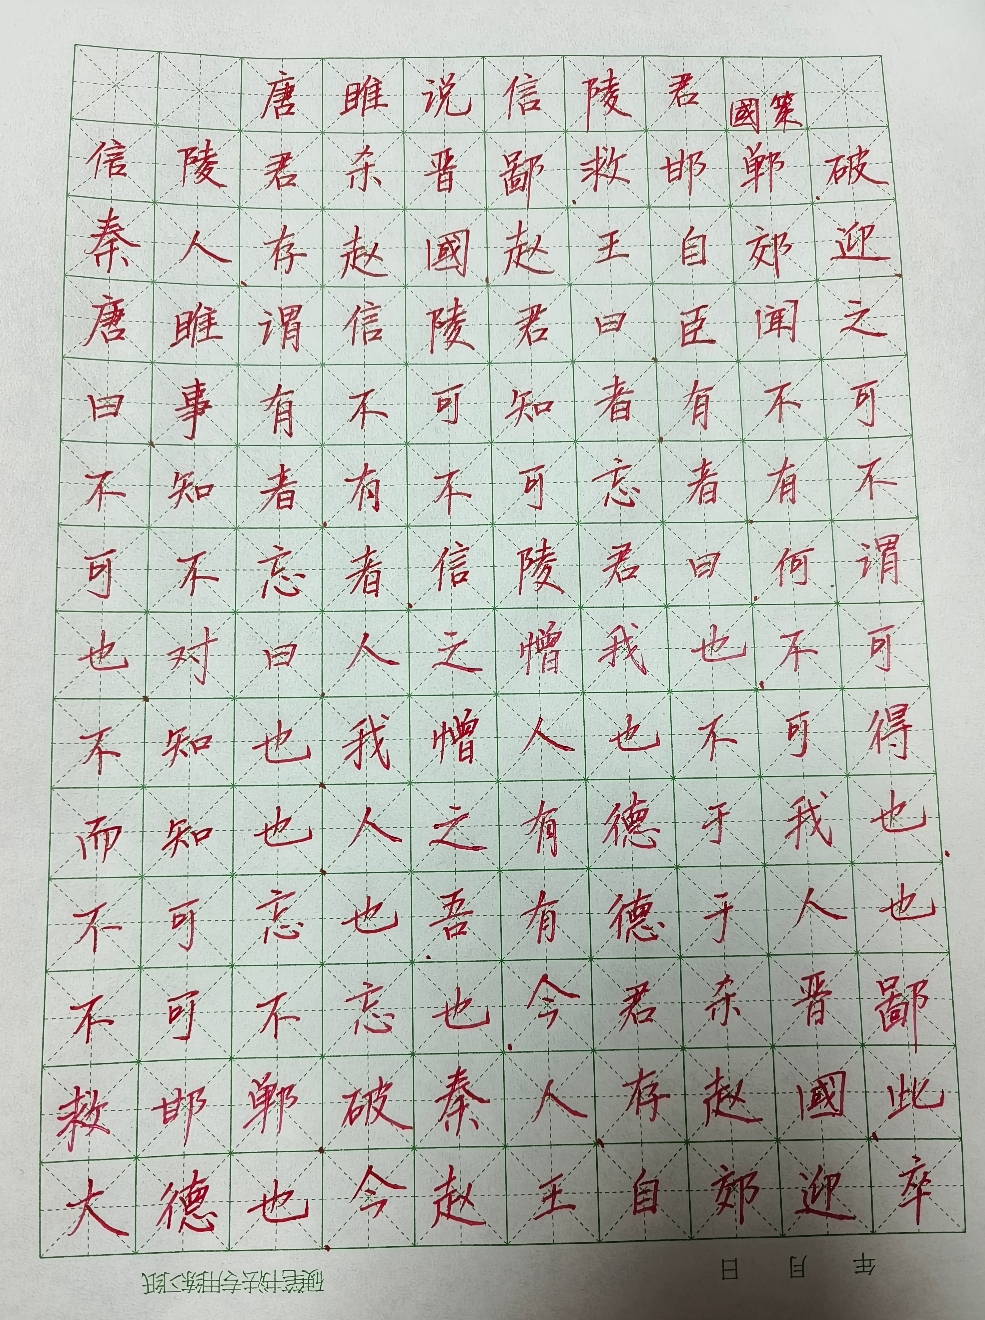 唐雎说信陵君 國策
信陵君杀晋鄙救邯郸破
秦人存赵國赵王自郊迎
唐雎谓信陵君曰臣闻之
曰事有不可知者有不可
不知者有不可忘者有不
可不忘者信陵君曰何谓
也对曰人之憎我也不可
不知也我憎人也不可得
而知也人之有德于我也
不可忘也吾有德于人也
不可不忘也今君杀晋鄙
救邯郸破秦人存赵國此
大德也今赵王自郊迎卒
年 月 日
硬笔书法专用练习纸